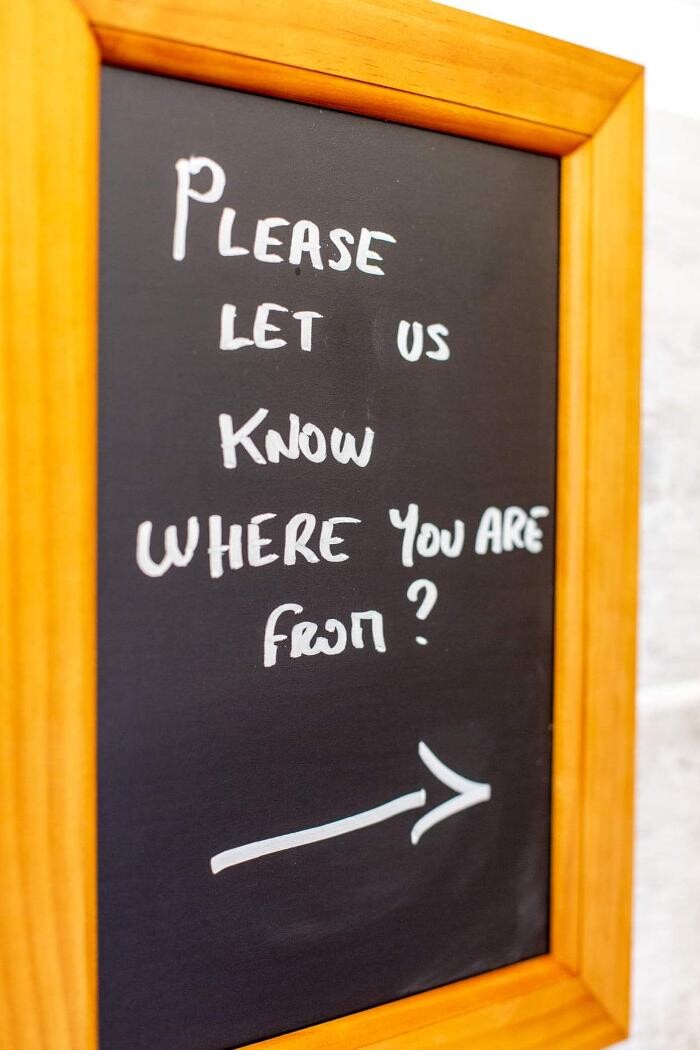 PLEASE
LET US
KNOW
WHERE YOU ARE
FROM?